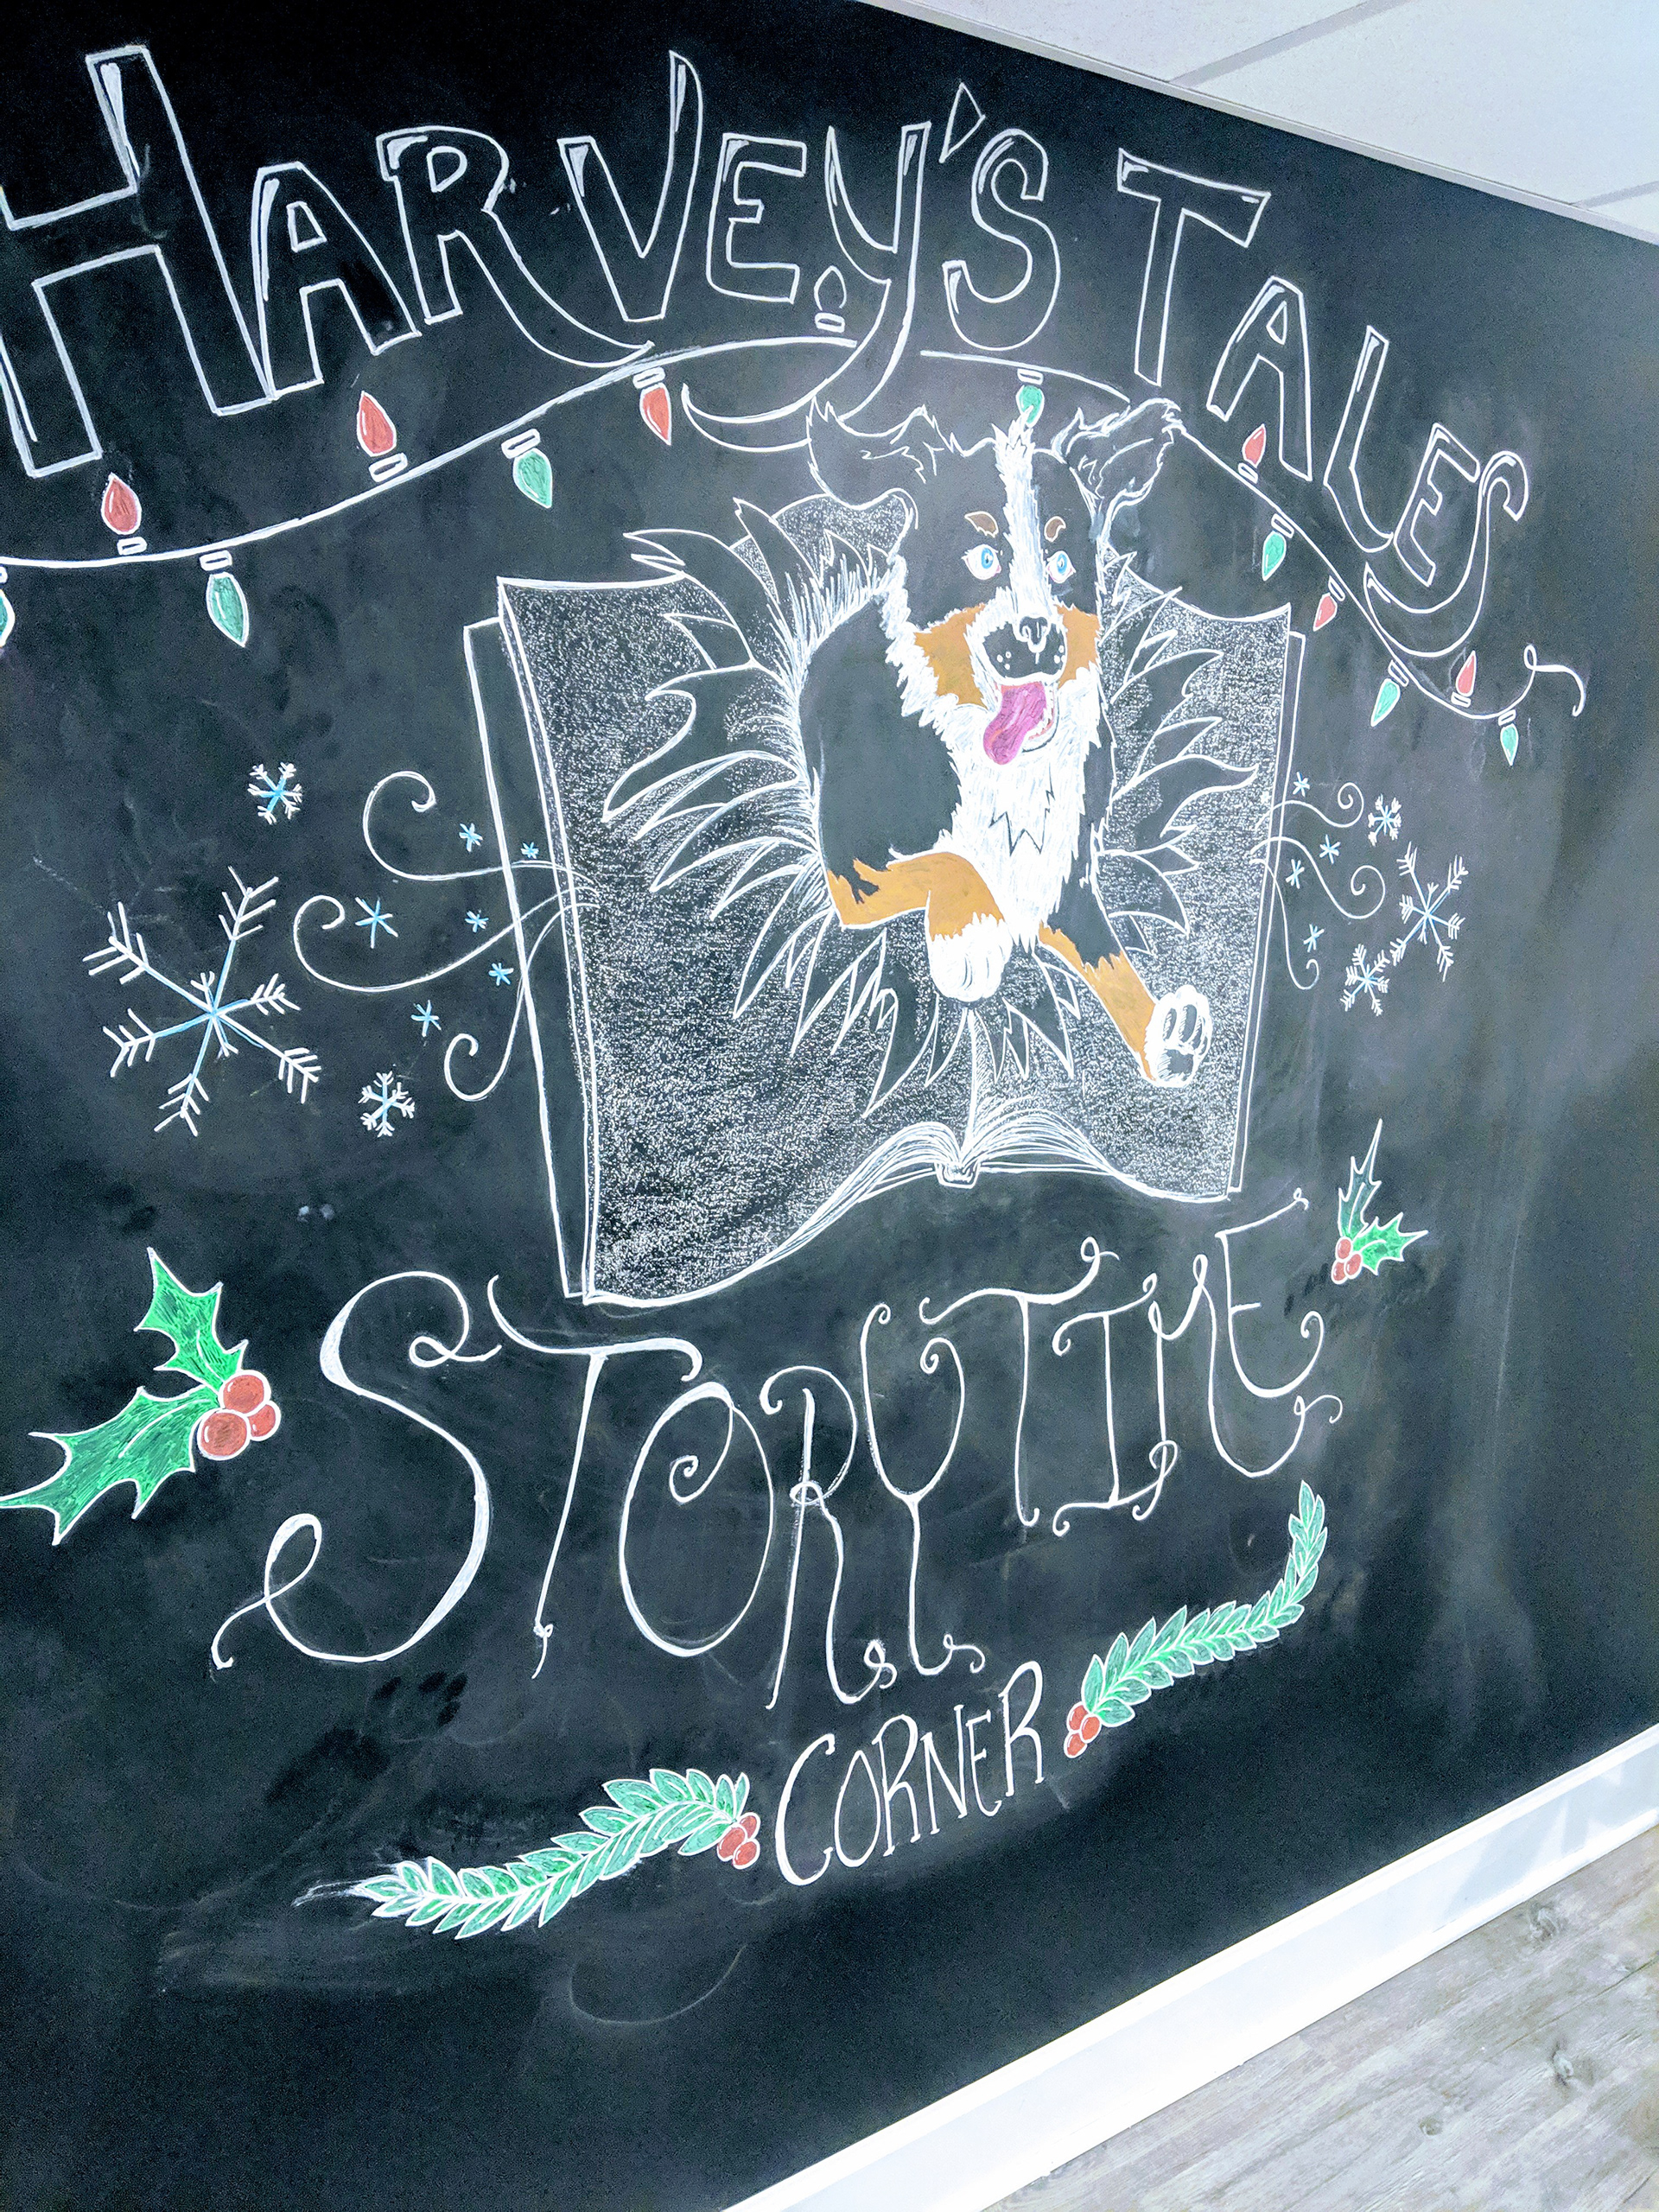 HARVEY'S TALES
STORYTIME
CORNER